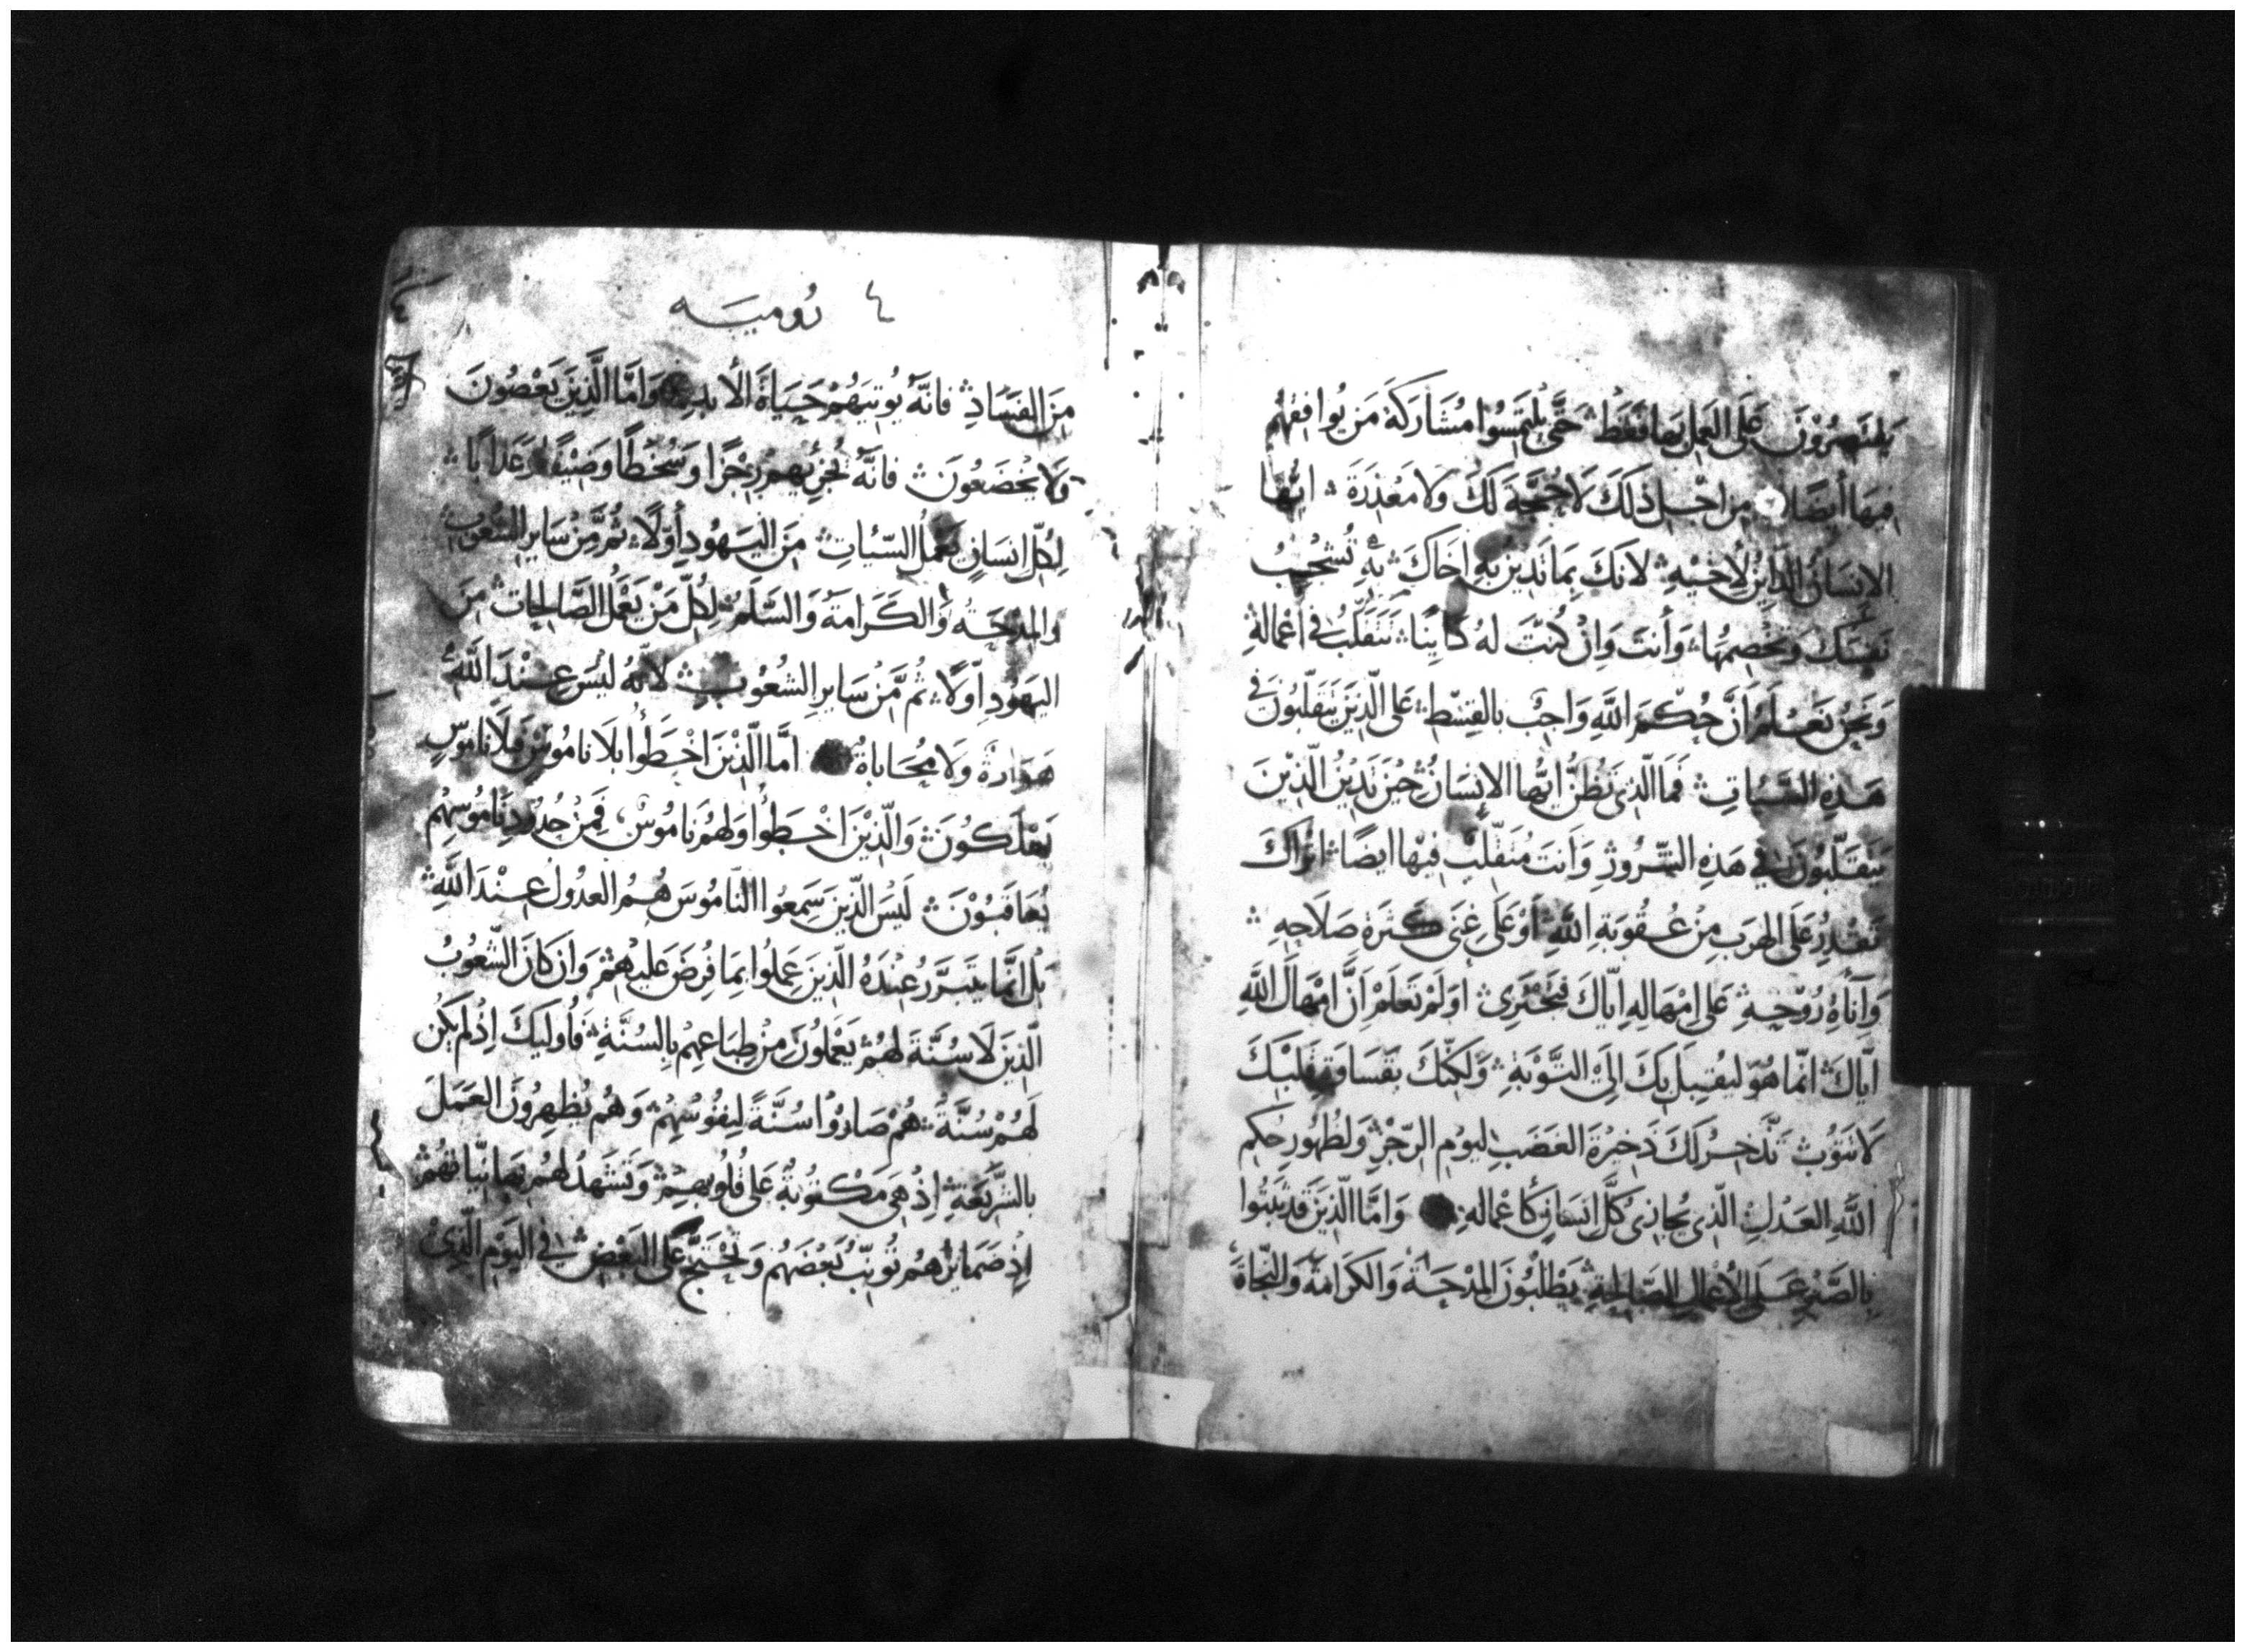 يلتهمرون على العمل بها فقط حتى يلتمسوا مشاركة من يوافقهم
فيها أيضًا من اجل ذلك لا حجة لك ولا معذرة ايها
الانسان الداين لاخيه لانك بما تدين به اخاك به تشجب
نفسك وتخصمها وأنت وان كنت له داينا تتقلب في اعماله
ونحن نعلم ان حكم الله واجب بالقسط على الذين يتقلبون في
هذه السيات فما الذي تظن ايها الانسان حين تدين الذين
يتقلبون في هذه الشرور وانت متقلب فيها ايضا اتراك
تقدر على الهرب من عقوبة الله او على غنى كثرة صلاحه
وآناة روحه على امهاله اياك فتجترى او لم تعلم ان امهال الله
اياك انما هو ليقبل بك الى التوبة ولكنك بقساوة قلبك
لا تتوب تدخر لك ذخيرة الغضب ليوم الرجز ولظهور حكم
الله العدل الذي يجازى كل انسان كأعماله واما الذين قد ثبتوا
بالصبر على الاعمال الصالحة يطلبون المدحة والكرامة والنجاة
٤ روميه
من الفساد فانه يوتيهم حياة الأبد واما الذين يعصون
ولا يخضعون فانه يجزيهم رجزا وسخطا وضيقا وعذابا
لكل انسان يعمل السيات من اليهود أولا ثم من ساير الشعوب
والمدحة والكرامة والسلم لكل من يعمل الصالحات من
اليهود اولا ثم من ساير الشعوب لانه ليس عند الله
هوادة ولا محاباة اما الذين اخطوا بلا ناموس فبلا ناموس
يهلكون والذين اخطوا ولهم ناموس فمن حدود ناموسهم
يعاقبون ليس الذين سمعوا الناموس هم العدول عند الله
بل انما يتبرر عنده الذين عملوا بما فرض عليهم وان كان الشعوب
الذين لا سنة لهم يعملون من طباعهم بالسنة فأوليك اذ لم يكن
لهم سنة هم صاروا سنة لنفوسهم وهم يظهرون العمل
بالشريعة اذ هي مكتوبة على قلوبهم وتشهد لهم بها نياتهم
اذ ضمايرهم توبب بعضهم وتحتج على البعض في اليوم الذي